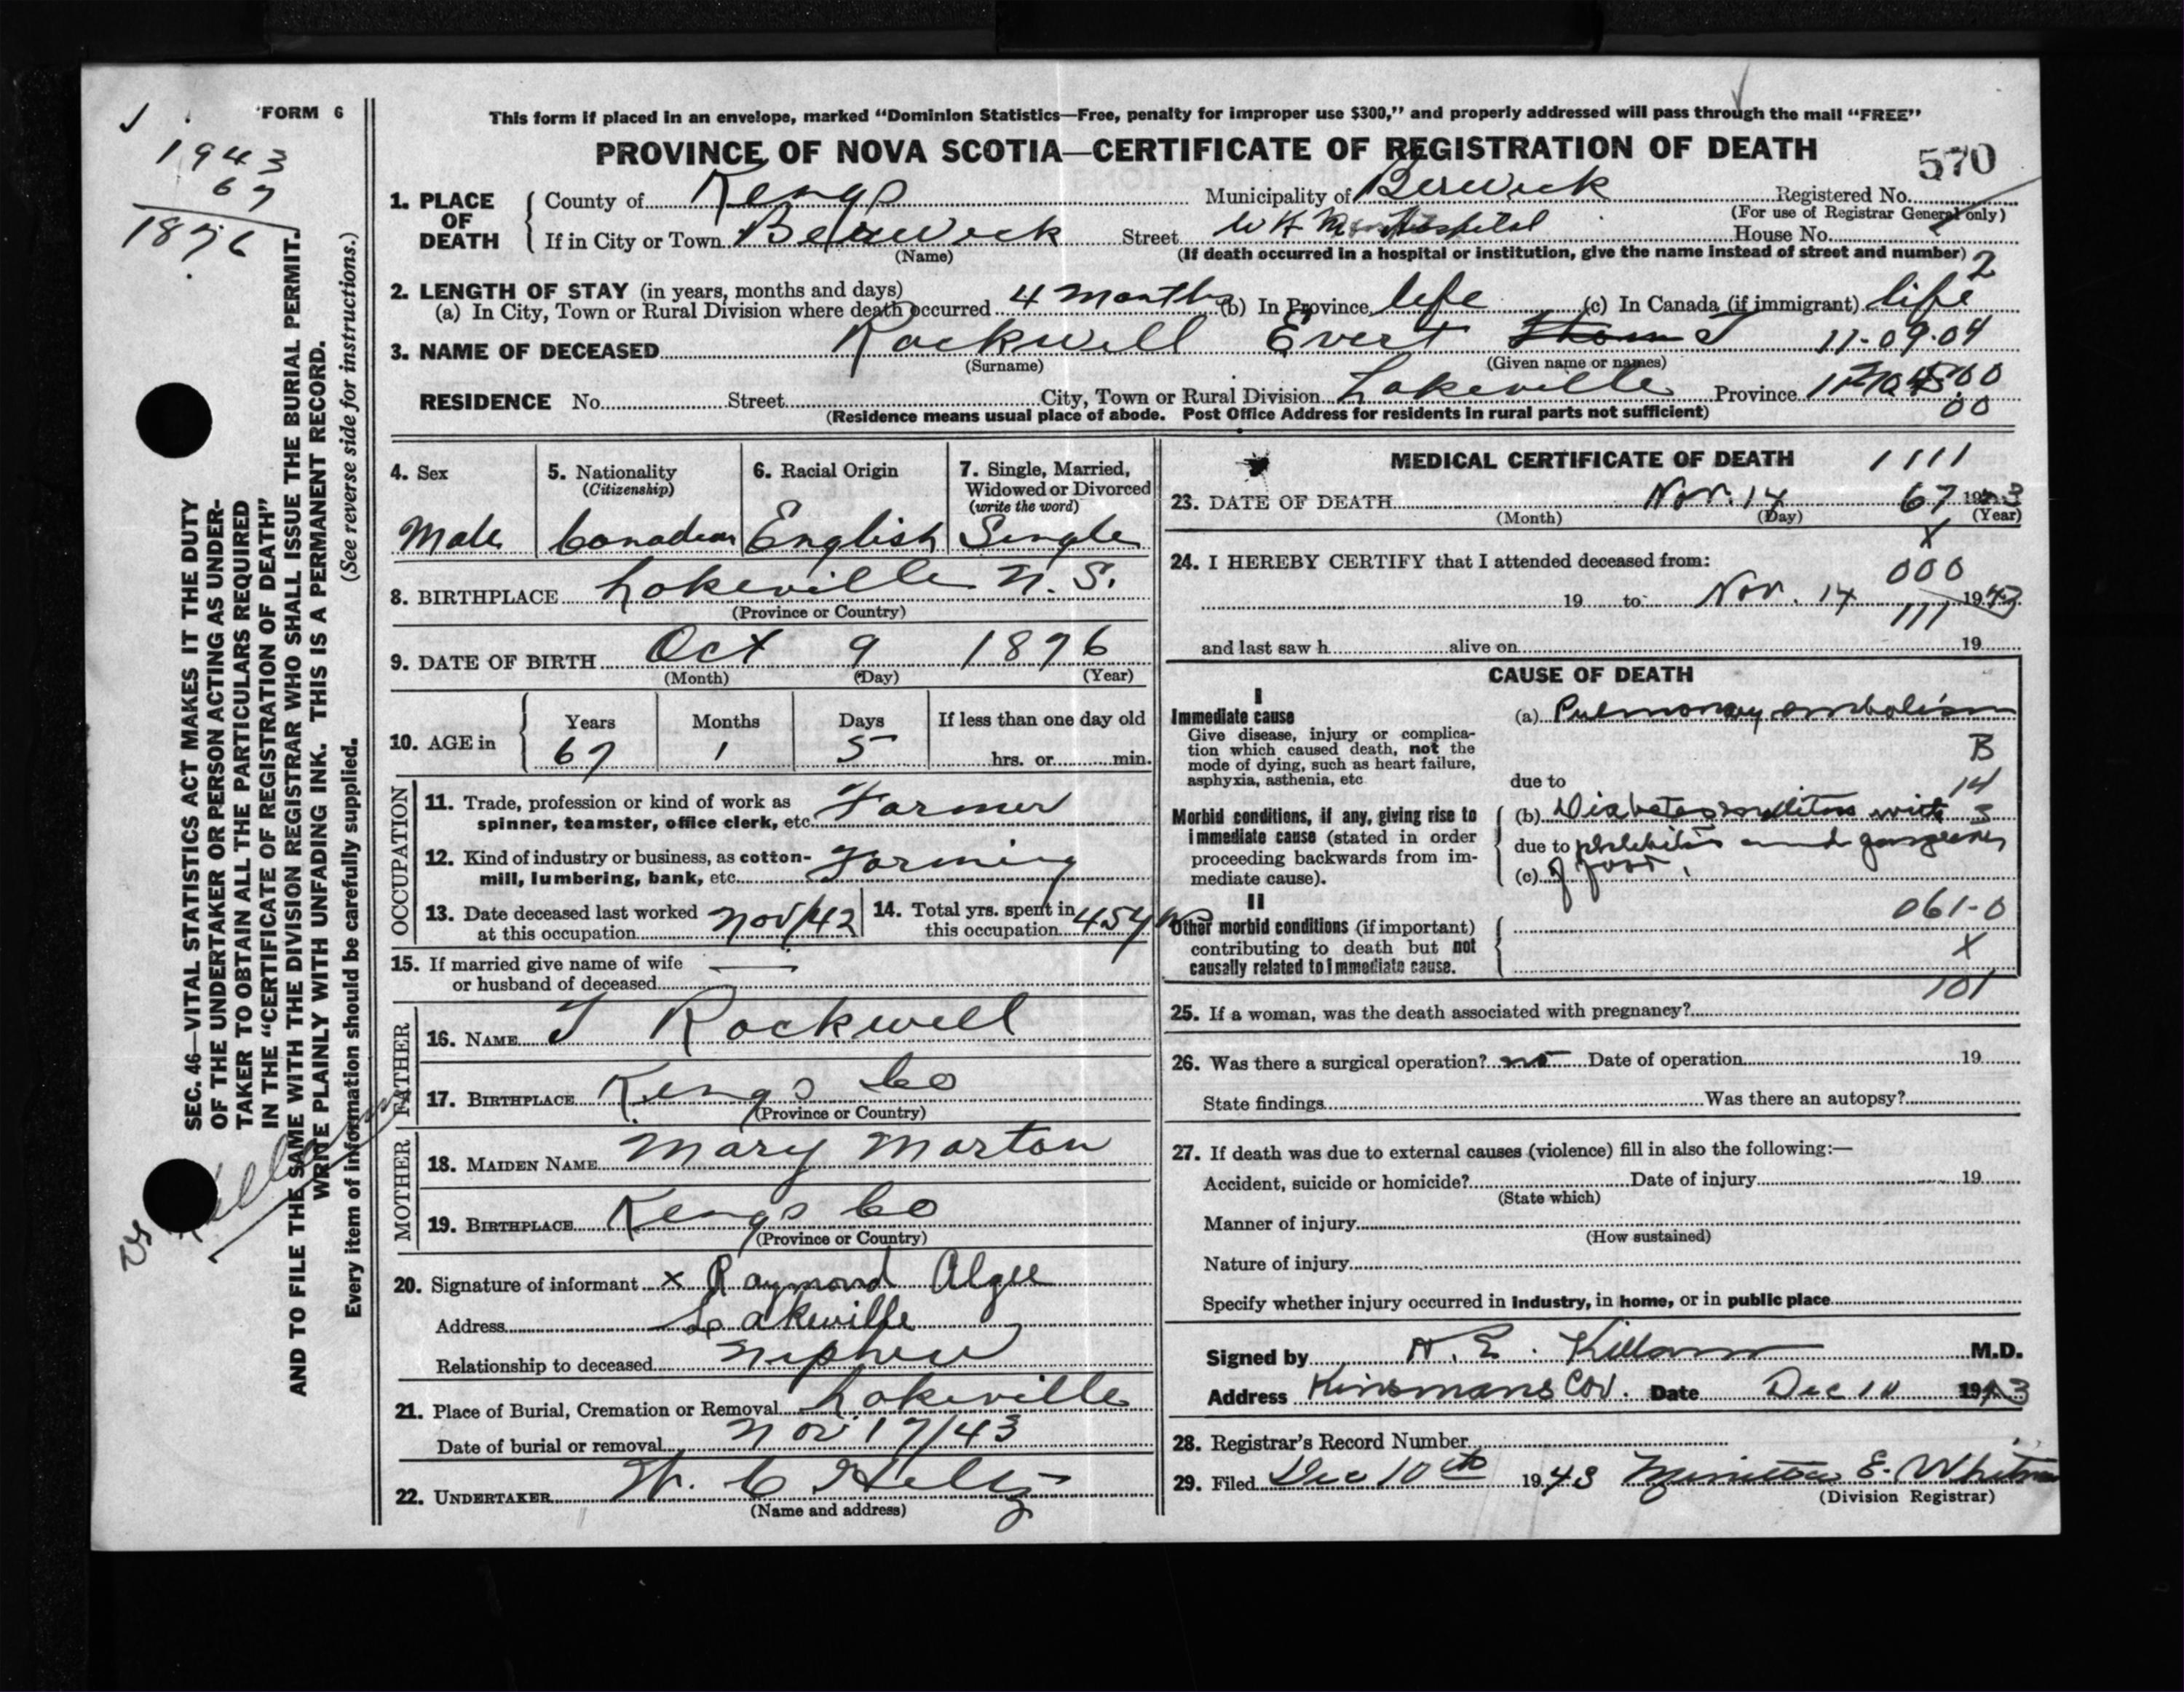 FORM 6
This form if placed in an envelope, marked “Dominion Statistics—Free, penalty for improper use $300,” and properly addressed will pass through the mail “FREE”
PROVINCE OF NOVA SCOTIA—CERTIFICATE OF REGISTRATION OF DEATH
570
1943
67
1876
1. PLACE OF DEATH
County of Kings Municipality of Berwick Registered No.
(For use of Registrar General only)
If in City or Town Berwick Street W K M Hospital House No.
(Name) (If death occurred in a hospital or institution, give the name instead of street and number) 2
2. LENGTH OF STAY (in years, months and days)
(a) In City, Town or Rural Division where death occurred 4 months (b) In Province life (c) In Canada (if immigrant) life
3. NAME OF DECEASED Rockwell Evert T 11-09-04
(Surname) (Given name or names)
RESIDENCE No. Street City, Town or Rural Division Lakeville Province
00
(Residence means usual place of abode. Post Office Address for residents in rural parts not sufficient)
4. Sex
Male
5. Nationality
(Citizenship)
Canadian
6. Racial Origin
English
7. Single, Married, Widowed or Divorced
(write the word)
Single
8. BIRTHPLACE Lakeville N.S.
(Province or Country)
9. DATE OF BIRTH Oct 9 1876
(Month) (Day) (Year)
10. AGE in
Years Months Days If less than one day old
67 1 5 hrs. or min.
OCCUPATION
11. Trade, profession or kind of work as
spinner, teamster, office clerk, etc. Farmer
12. Kind of industry or business, as cotton-
mill, lumbering, bank, etc. Farming
13. Date deceased last worked
at this occupation Nov/42
14. Total yrs. spent in
this occupation 45 yrs
15. If married give name of wife
or husband of deceased —
FATHER
16. NAME T Rockwell
17. BIRTHPLACE Kings Co
(Province or Country)
MOTHER
18. MAIDEN NAME Mary Morton
19. BIRTHPLACE Kings Co
(Province or Country)
20. Signature of informant x Raymond Algee
Address Lakeville
Relationship to deceased Nephew
21. Place of Burial, Cremation or Removal Lakeville
Date of burial or removal Nov 17/43
22. UNDERTAKER W. C
(Name and address)
MEDICAL CERTIFICATE OF DEATH 1111
23. DATE OF DEATH Nov. 14 67 1943
(Month) (Day) (Year)
X
24. I HEREBY CERTIFY that I attended deceased from:
000
19 to Nov. 14 1943
111
and last saw h alive on 19
CAUSE OF DEATH
I
Immediate cause
Give disease, injury or complica-
tion which caused death, not the
mode of dying, such as heart failure,
asphyxia, asthenia, etc
(a) Pulmonary embolism
B
due to
14
Morbid conditions, if any, giving rise to
immediate cause (stated in order
proceeding backwards from im-
mediate cause).
(b) Diabetes mellitus with 3
due to phlebitis and gangrene
(c) of foot.
II
Other morbid conditions (if important)
contributing to death but not
causally related to immediate cause.
061-0
X
101
25. If a woman, was the death associated with pregnancy?
26. Was there a surgical operation? no Date of operation 19
State findings Was there an autopsy?
27. If death was due to external causes (violence) fill in also the following:—
Accident, suicide or homicide? Date of injury 19
(State which)
Manner of injury
(How sustained)
Nature of injury
Specify whether injury occurred in industry, in home, or in public place
Signed by H. E. Killam M.D.
Address Kinsmans Cor. Date Dec 10 1943
28. Registrar's Record Number
29. Filed Dec 10th 1943 E. Whitman
(Division Registrar)
SEC. 46—VITAL STATISTICS ACT MAKES IT THE DUTY
OF THE UNDERTAKER OR PERSON ACTING AS UNDER-
TAKER TO OBTAIN ALL THE PARTICULARS REQUIRED
IN THE “CERTIFICATE OF REGISTRATION OF DEATH”
AND TO FILE THE SAME WITH THE DIVISION REGISTRAR WHO SHALL ISSUE THE BURIAL PERMIT.
WRITE PLAINLY WITH UNFADING INK. THIS IS A PERMANENT RECORD.
Every item of information should be carefully supplied. (See reverse side for instructions.)